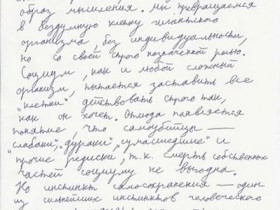 образ мышления, мы превращаемся
в бездумную клетку гигантского
организма без индивидуальности,
но со своей строго назначенной ролью.
Социум, как и любой сложный
организм, пытается заставить все
"клетки" действовать строго так,
как он хочет. Отсюда появляется
понятие, что самоубийцы —
"слабаки", "дураки", "сумасшедшие" и
прочие редиски, т.к. смерть собственных
частей социуму не выгодна.
Но инстинкт самосохранения — один
из сильнейших инстинктов человеческого